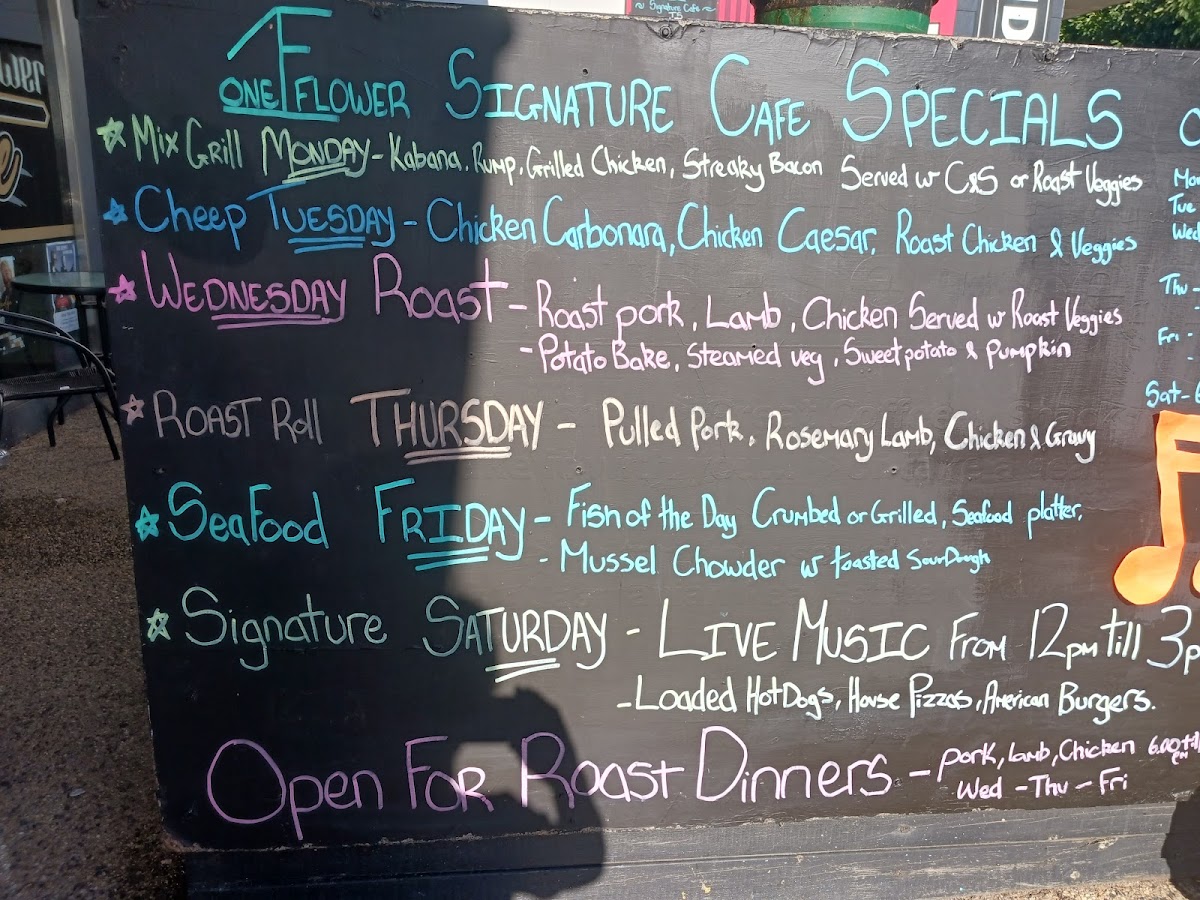 Signature Cafe
ower
ONE FLOWER SIGNATURE CAFE SPECIALS
Mix Grill MONDAY - Kabana, Rump, Grilled Chicken, Streaky Bacon Served w C&S or Roast Veggies
Cheep TUESDAY - Chicken Carbonara, Chicken Caesar, Roast Chicken & Veggies
WEDNESDAY ROAST - Roast pork, Lamb, Chicken Served w Roast Veggies
- Potato Bake, Steamed veg, Sweet potato & Pumpkin
ROAST Roll THURSDAY - Pulled Pork, Rosemary Lamb, Chicken & Gravy
SeaFood FRIDAY - Fish of the Day Crumbed or Grilled, Seafood platter,
- Mussel Chowder w toasted SourDough
Signature SATURDAY - LIVE MUSIC FROM 12pm till 3p
- Loaded HotDogs, House Pizzas, American Burgers.
Open For Roast Dinners - Pork, Lamb, Chicken 6.00
Wed - Thu - Fri
Mon
Tue
Wed
Thu -
Fri -
-
Sat - 6